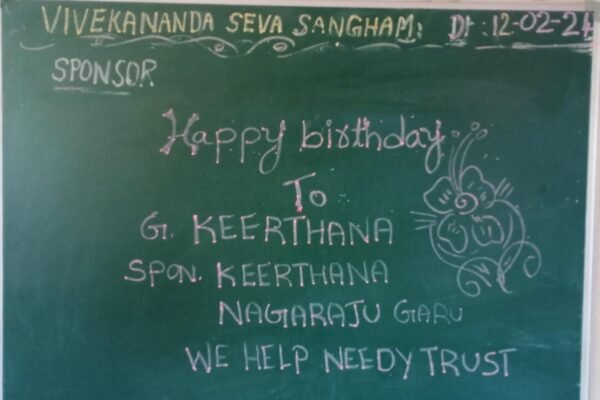 VIVEKANANDA SEVA SANGHAM: Dt: 12-02-21
SPONSOR
Happy birthday
To
G. KEERTHANA
SPON. KEERTHANA
NAGARAJU GARU
WE HELP NEEDY TRUST